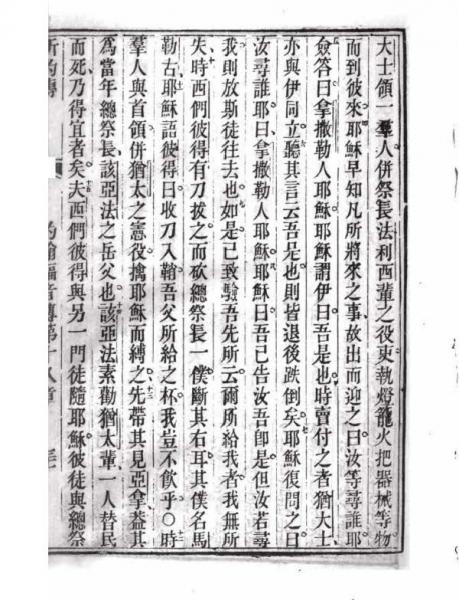 大士領一羣人併祭長法利西輩之役束執燈籠火把器械等物
而到彼來耶穌早知凡所將來之事故出而迎之曰汝等尋誰耶
僉答曰拿撒勒人耶穌耶穌謂伊曰吾是也時賣付之者猶大士
亦與伊同立聽其言云吾是也則皆退後跌倒矣耶穌復問之曰
汝尋誰耶曰拿撒勒人耶穌耶穌曰吾已告汝吾卽是但汝若尋
我則放斯徒往去也如是已致驗吾先所云爾所給我者我無所
失時西們彼得有刀拔之而砍總祭長一僕斷其右耳其僕名馬
勒古耶穌語彼得曰收刀入鞘吾父所給之杯我豈不飲乎〇時
羣人與首領併猶太之憲役擒耶穌而縛之先帶其見亞拿葢其
為當年總祭長該亞法之岳父也該亞法素勸猶太輩一人替民
而死乃得宜者矣夫西們彼得與另一門徒隨耶穌彼徒與總祭